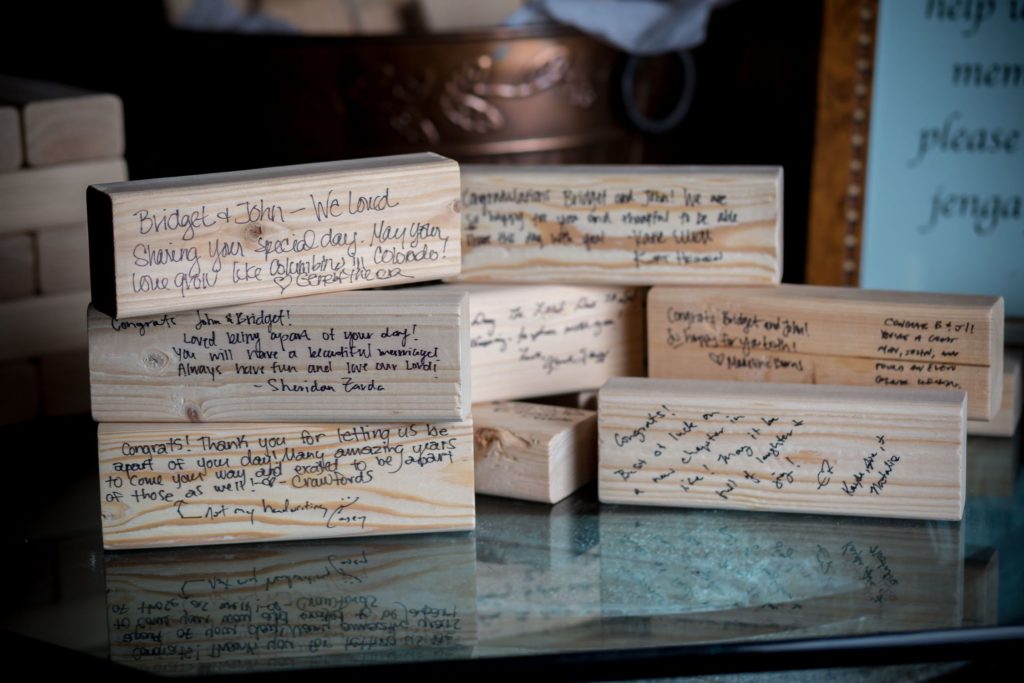 Bridget & John - We loved
Sharing your special day. May your
love grow like Columbine's in Colorado!
Congratulations Bridget and John! We are
so happy for you and thankful to be able
share this day with you!
Congrats John & Bridget!
Loved being apart of your day!
You will have a beautiful marriage!
Always have fun and love our Lord!
- Sheridan Zarda
Congrats! Thank you for letting us be
apart of your day! Many amazing years
to come your way and excited to be apart
of those as well! - Crawfords
not my handwriting Casey
Love,
Congrats Bridget and John!
So happy for you both!
Madeline Burns
Congrats!
Best of luck on
a new chapter in
life! May it be
full of laughter &
joy!
help
mem
please
jenga